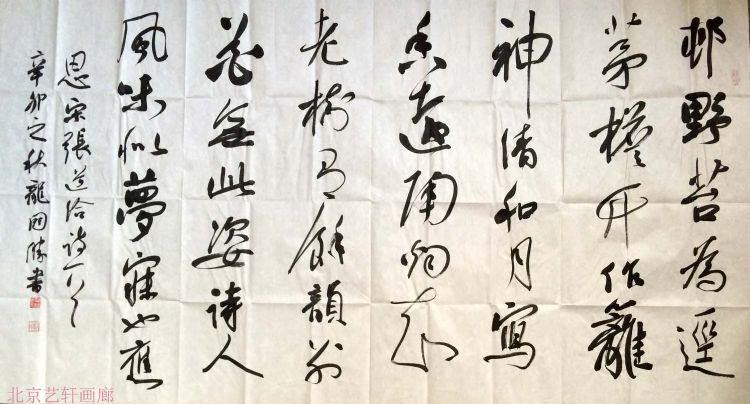 邨野苔為逕
茅檐竹作籬
神清和月寫
香遠隔烟知
老樹有餘韻別
花無此姿詩人
風味似夢寐也應
思宋張道洽詩一首
辛卯之秋龍国勝書
北京艺轩画廊